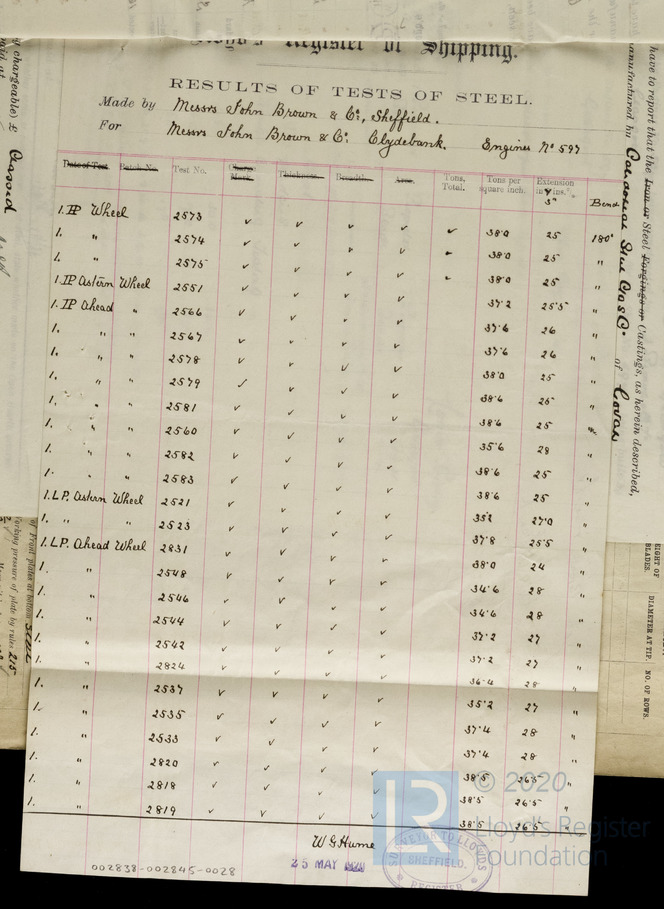 Lloyd's Register of Shipping.
RESULTS OF TESTS OF STEEL.
Made by Messrs John Brown & Co, Sheffield.
For Messrs John Brown & Co. Clydebank. Engines No 597
Date of Test. Batch No. Test No. Charge Mark. Thickness. Breadth. Area. Tons, Total. Tons per square inch. Extension in 3" ins. % Bend
1. IP Wheel 2573 ✓ ✓ ✓ ✓ ✓ 38.0 25 180°
1. " 2574 ✓ ✓ ✓ ✓ ✓ 38.0 25 "
1. " 2575 ✓ ✓ ✓ ✓ ✓ 38.0 25 "
1. IP Astern Wheel 2551 ✓ ✓ ✓ ✓ 37.2 25.5 "
1. IP Ahead " 2566 ✓ ✓ ✓ ✓ 37.6 26 "
1. " " 2567 ✓ ✓ ✓ ✓ 37.6 26 "
1. " " 2578 ✓ ✓ ✓ ✓ 38.0 25 "
1. " " 2579 ✓ ✓ ✓ ✓ 38.6 25 "
1. " " 2581 ✓ ✓ ✓ ✓ 38.6 25 "
1. " " 2560 ✓ ✓ ✓ ✓ 35.6 28 "
1. " " 2582 ✓ ✓ ✓ ✓ 38.6 25 "
1. " " 2583 ✓ ✓ ✓ ✓ 38.6 25 "
1. L.P. Astern Wheel 2521 ✓ ✓ ✓ ✓ 35.2 27.0 "
1. " " 2523 ✓ ✓ ✓ ✓ 37.8 25.5 "
1. L.P. Ahead Wheel 2831 ✓ ✓ ✓ ✓ 38.0 24 "
1. " 2548 ✓ ✓ ✓ ✓ 34.6 28 "
1. " 2546 ✓ ✓ ✓ ✓ 34.6 28 "
1. " 2544 ✓ ✓ ✓ ✓ 37.2 27 "
1. " 2542 ✓ ✓ ✓ ✓ 37.2 27 "
1. " 2824 ✓ ✓ ✓ ✓ 36.4 28 "
1. " 2537 ✓ ✓ ✓ ✓ 35.2 27 "
1. " 2535 ✓ ✓ ✓ ✓ 37.4 28 "
1. " 2533 ✓ ✓ ✓ ✓ 37.4 28 "
1. " 2820 ✓ ✓ ✓ ✓ 38.5 26.5 "
1. " 2818 ✓ ✓ ✓ ✓ 38.5 26.5 "
1. " 2819 ✓ ✓ ✓ ✓ 38.5 26.5 "
W G Hume
25 MAY 1920
SURVEYOR TO LLOYD'S
SHEFFIELD.
REGISTER
002838-002845-0028
© 2020
LR
Lloyd's Register
Foundation
chargeable) £
Classed
of Front plates at bottom
working pressure of plate by rules 215
have to report that the Iron or Steel Forgings or Castings, as herein described,
manufactured by
of
EIGHT OF BLADES.
DIAMETER AT TIP.
NO. OF ROWS.